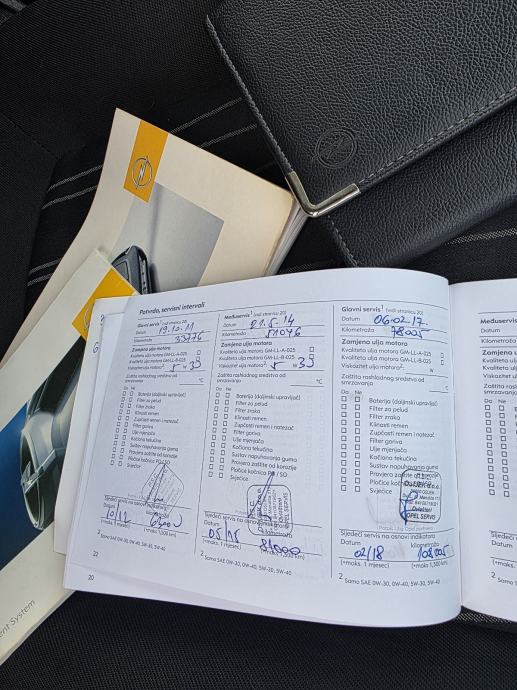 Potvrda, servisni intervali
Glavni servis¹ (vidi stranicu 20)
Datum 19.10.11
Kilometraža 33776
Zamjena ulja motora
Kvaliteta ulja motora GM-LL-A-025
Kvaliteta ulja motora GM-LL-B-025
Viskozitet ulja motora²: 5 W 30
Zaštita rashladnog sredstva od
smrzavanja °C
Da Ne
Baterija (daljinski upravljač)
Filter za pelud
Filter zraka
Klinasti remen
Zupčasti remen i natezač
Filter goriva
Ulje mjenjača
Kočna tekućina
Sustav napuhavanja guma
Provjera zaštite od korozije
Pločice kočnica PO / SO
Svjećice
Sljedeći servis na osnovi indikatora
Datum
10/12
(+maks. 1 mjesec) (+maks 1,500 km)
² Samo SAE 0W-30, 0W-40, 5W-30, 5W-40
22
20
Međuservis¹ (vidi stranicu 20)
Datum 21.5.14
Kilometraža 51046
Zamjena ulja motora
Kvaliteta ulja motora GM-LL-A-025
Kvaliteta ulja motora GM-LL-B-025
Viskozitet ulja motora²: 5 W 30
Zaštita rashladnog sredstva od
smrzavanja °C
Da Ne
Baterija (daljinski upravljač)
Filter za pelud
Filter zraka
Klinasti remen
Zupčasti remen i natezač
Filter goriva
Ulje mjenjača
Kočna tekućina
Sustav napuhavanja guma
Provjera zaštite od korozije
Pločice kočnica PO / SO
Svjećice
OPEL SERVIS
Sljedeći servis na osnovi indikatora
Datum
05/15 81000
(+maks. 1 mjesec) (+maks 1,500 km)
² Samo SAE 0W-30, 0W-40, 5W-30, 5W-40
Glavni servis¹ (vidi stranicu 20)
Datum 06.02.17.
Kilometraža 78005
Zamjena ulja motora
Kvaliteta ulja motora GM-LL-A-025
Kvaliteta ulja motora GM-LL-B-025
Viskozitet ulja motora²: W
Zaštita rashladnog sredstva od
smrzavanja °C
Da Ne
Baterija (daljinski upravljač)
Filter za pelud
Filter zraka
Klinasti remen
Zupčasti remen i natezač
Filter goriva
Ulje mjenjača
Kočna tekućina
Sustav napuhavanja guma
Provjera zaštite od korozije
Pločice
Svjećice
d.o.o.
Ovlašteni
OPEL SERVIS
Sljedeći servis na osnovi indikatora
Datum kilometraža
02/18 108005
(+maks. 1 mjesec) (+maks. 1,500 km)
² Samo SAE 0W-30, 0W-40, 5W-30, 5W-40
Međuservis
Datum
Kilometraža
Zamjena
Kvaliteta
Kvaliteta
Viskozitet
Zaštita
smrzavanja
Da Ne
Sljedeći
Datum
(+maks.
² Samo
ent System